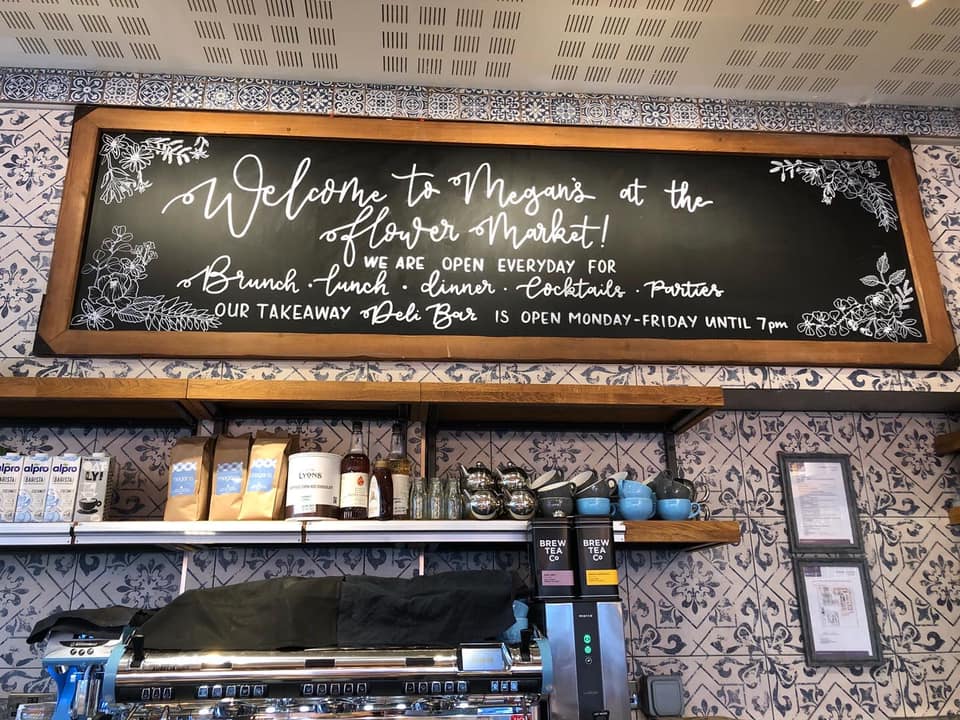 Welcome to Megan's at the
flower Market!
WE ARE OPEN EVERYDAY FOR
Brunch · lunch · dinner · Cocktails · Parties
OUR TAKEAWAY Deli Bar IS OPEN MONDAY-FRIDAY UNTIL 7pm
alpro
BARISTA
alpro
BARISTA
alpro
BARISTA
LY!
LYONS
BREW
TEA
Co
BREW
TEA
Co